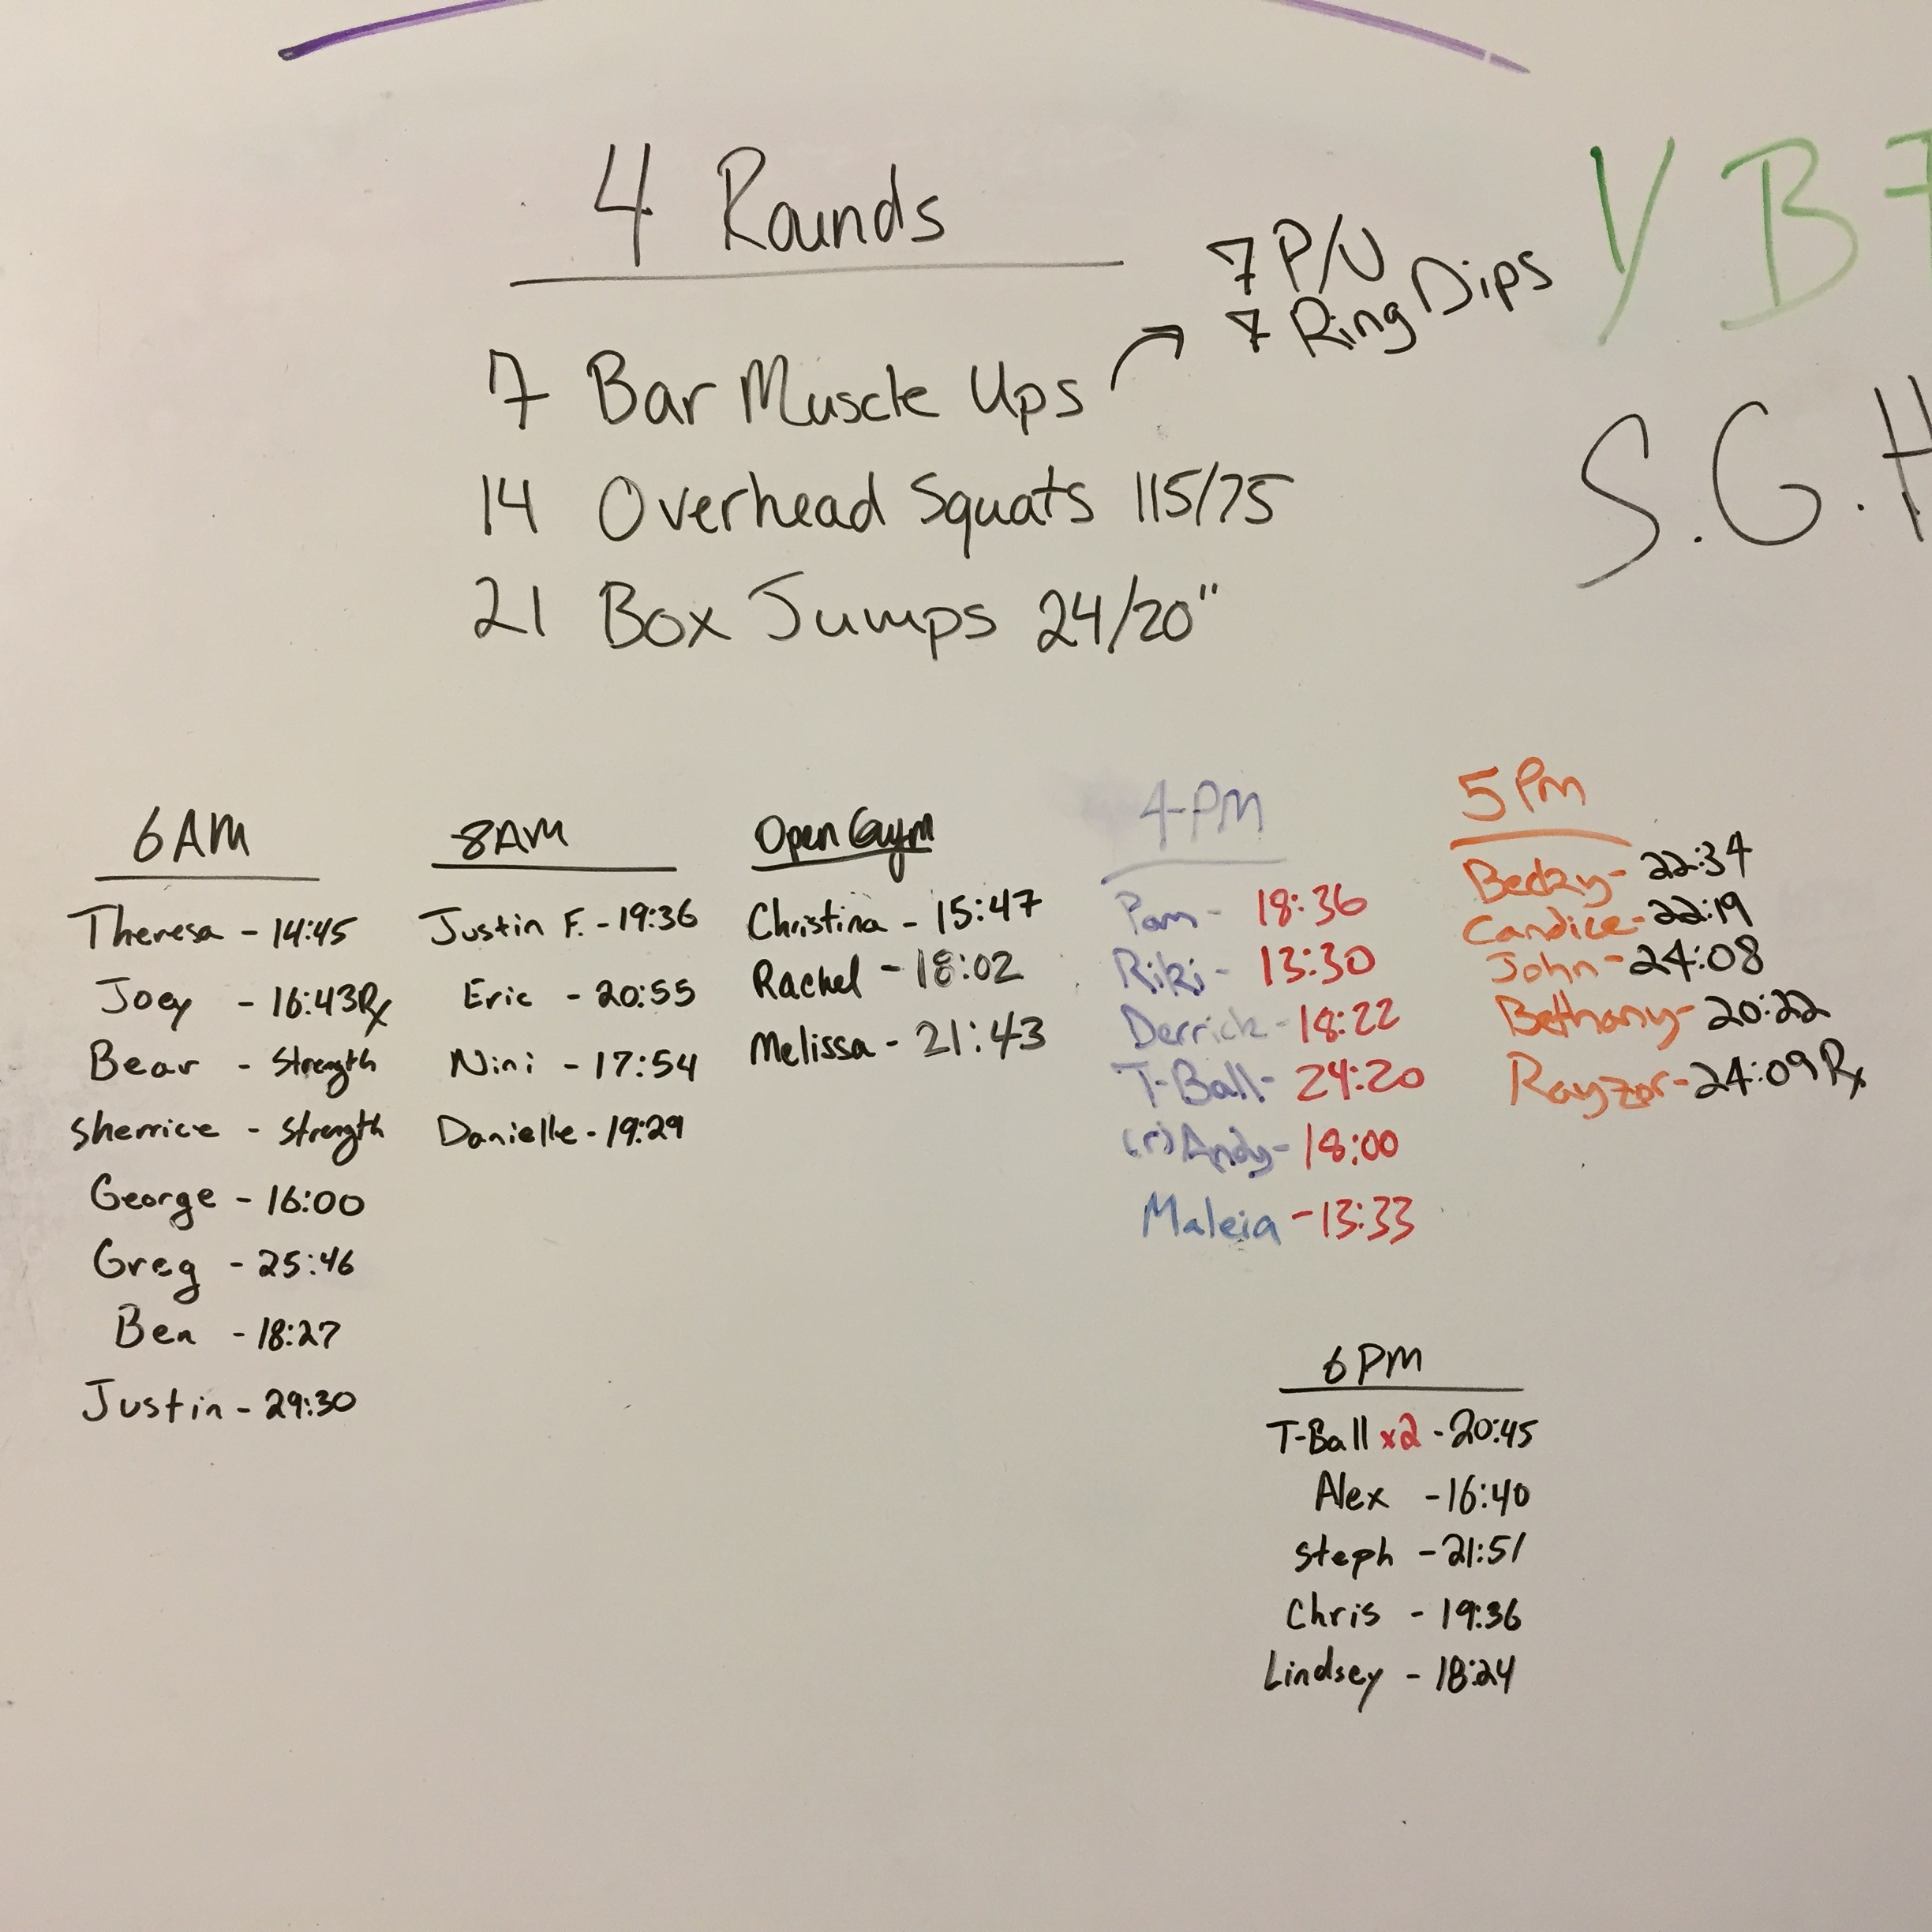 4 Rounds
7 P/U
7 Ring Dips
7 Bar Muscle Ups
14 Overhead Squats 115/75
21 Box Jumps 24/20"
Y B
S.G.H
6AM
Theresa - 14:45
Joey - 16:43Rx
Bear - Strength
Sherrice - Strength
George - 16:00
Greg - 25:46
Ben - 18:27
Justin - 29:30
8AM
Justin F. - 19:36
Eric - 20:55
Nini - 17:54
Danielle - 19:29
Open Gym
Christina - 15:47
Rachel - 18:02
Melissa - 21:43
4PM
Pam - 18:36
Riki - 13:30
Derrick - 18:22
T-Ball - 24:20
(r) Andy - 18:00
Maleia - 13:33
5PM
Becky - 22:34
Candice - 22:19
John - 24:08
Bethany - 20:22
Rayzor - 24:09 Rx
6PM
T-Ball x2 - 20:45
Alex - 16:40
Steph - 21:51
Chris - 19:36
Lindsey - 18:24